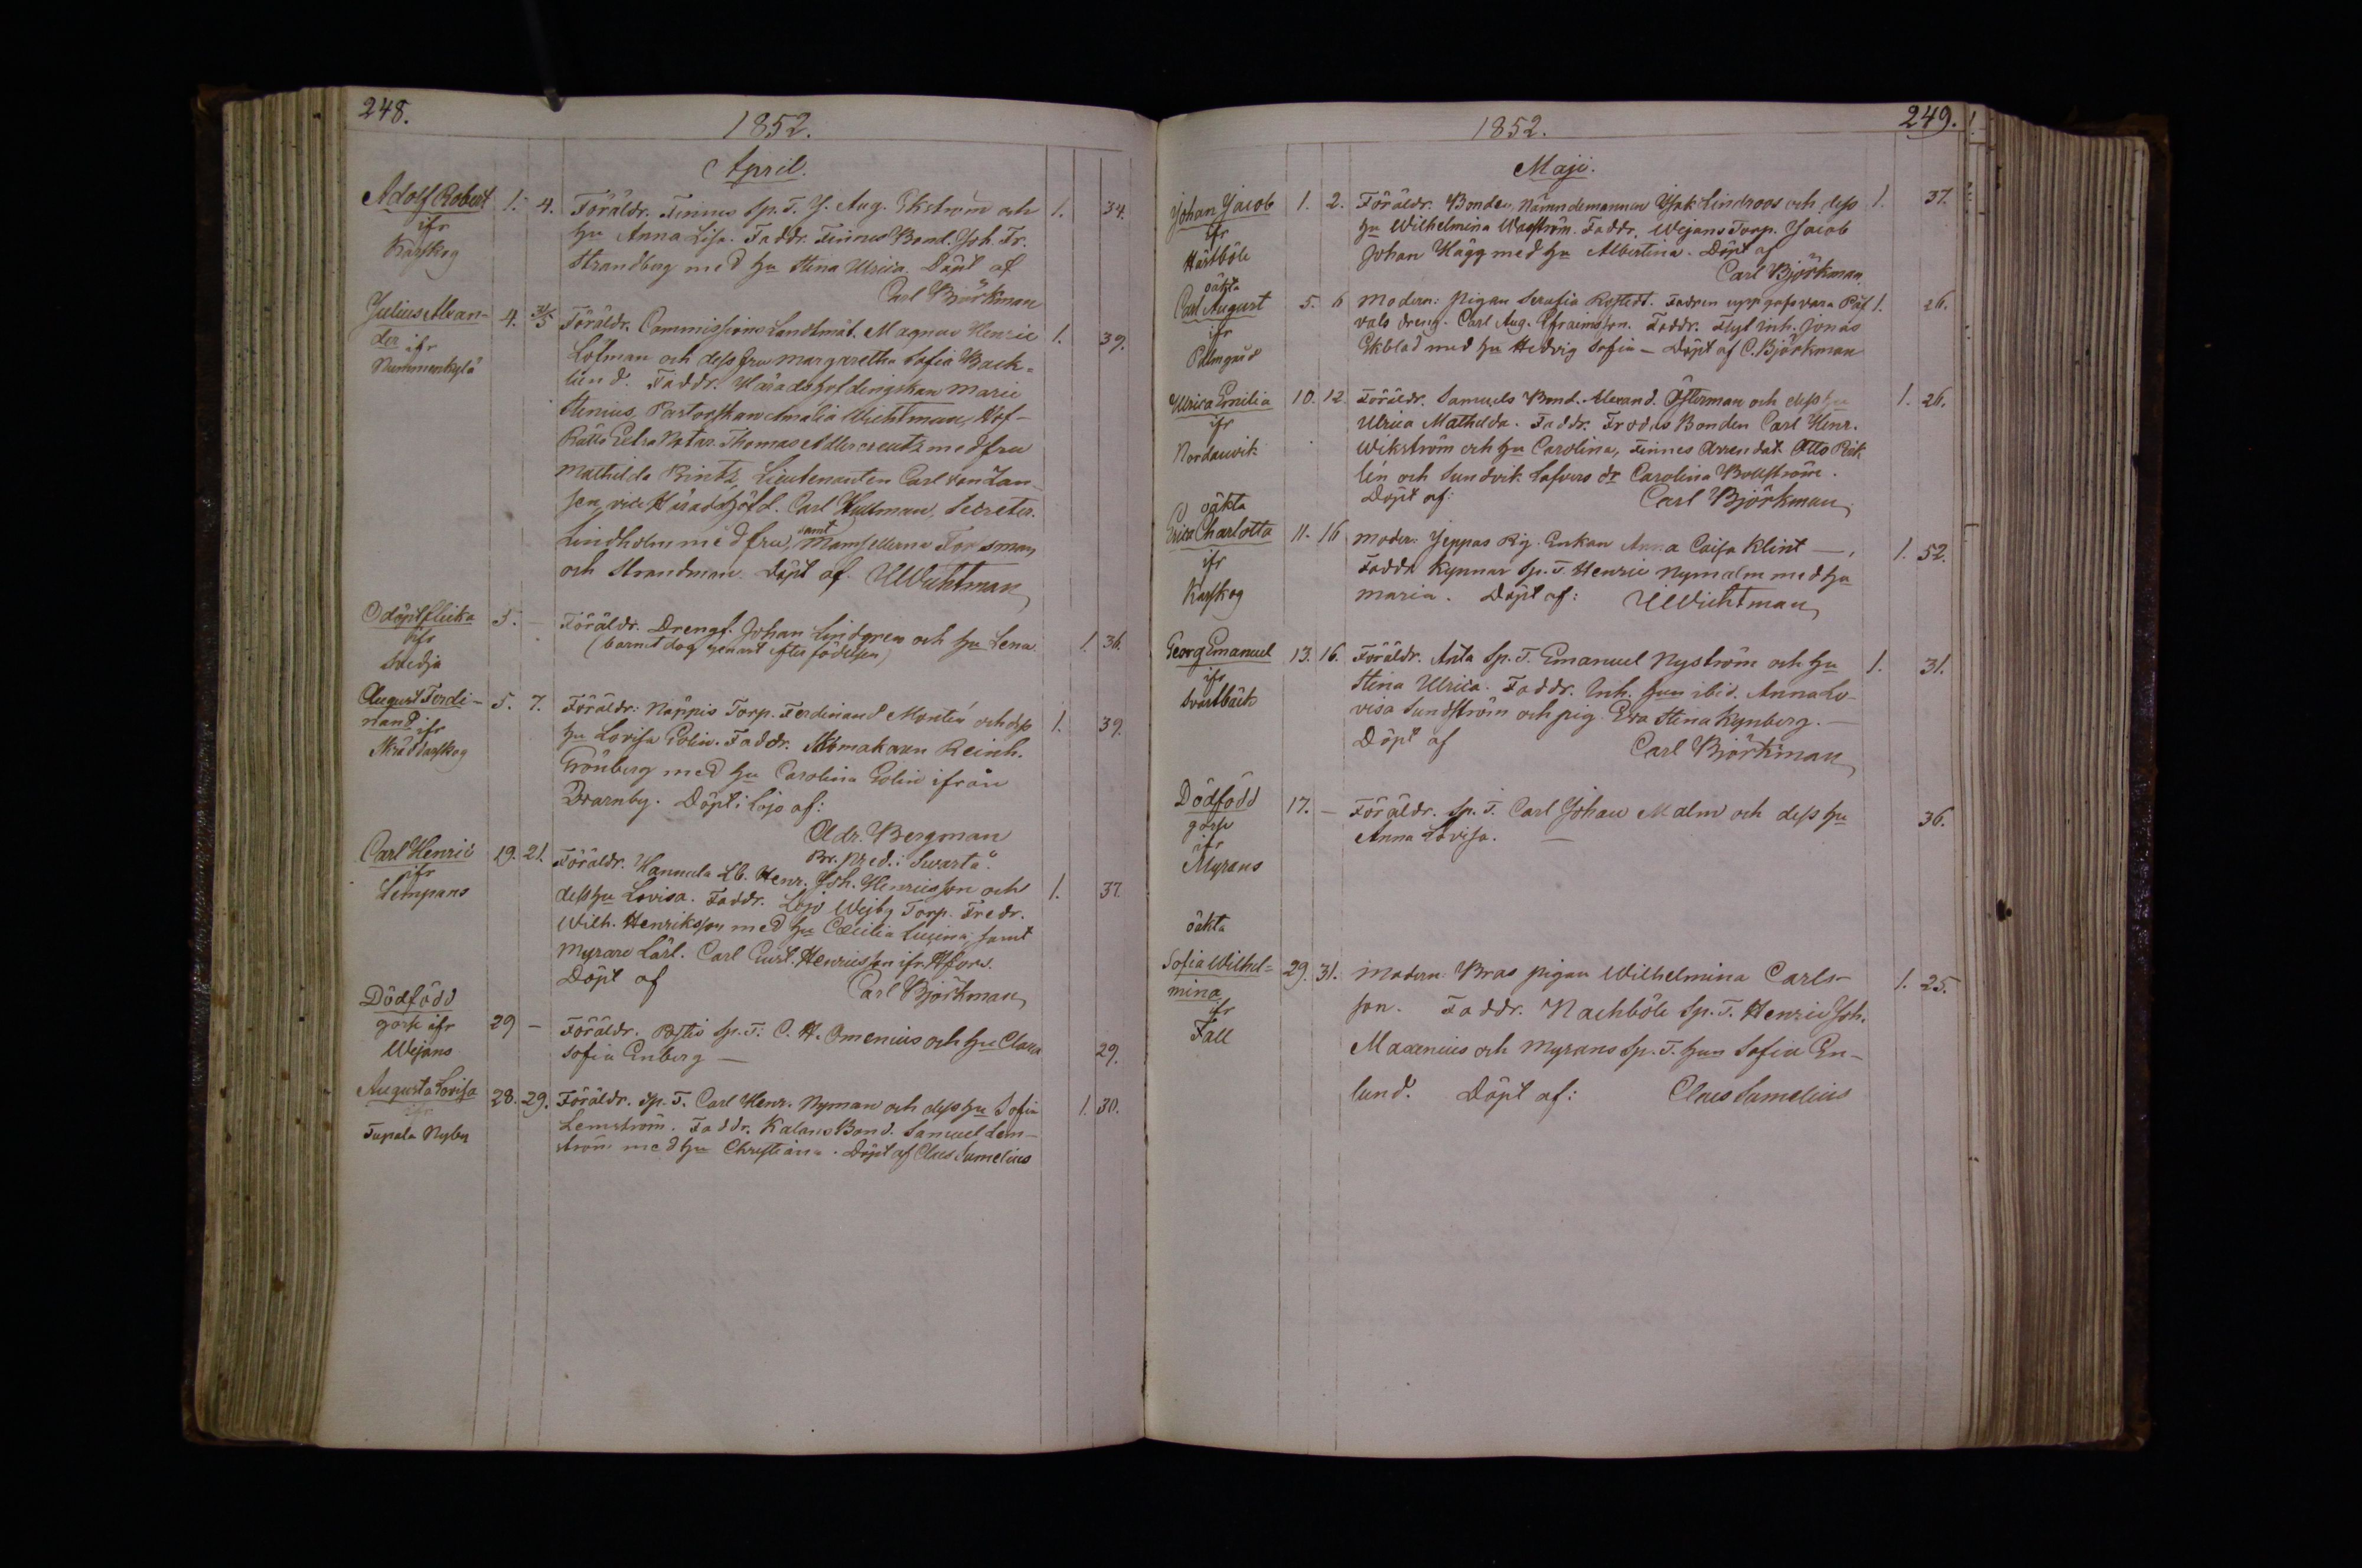 248.
1852.
April.
Adolf Robert 1. 4. Föräldr. Finnes Sp. T. J. Aug. Ekström och 1. 34.
ifr hu Anna Lisa. Faddr. Finnes Bond. Joh. Fr.
Karskog Strandberg med hu Stina Ulrica. Döpt af
Carl Björkman
Julius Alexan- 4. 31/5 Föräldr. Commissions Landtmät. Magnus Henric 1. 39.
der ifr Löfman och dess fru Margaretha Sofia Back-
Nummenkylä lund. Faddr. Häradshöfdingskan Marie
Stenius, Pastorskan Amalia Wichtman, Hof-
Rätts Extra Notar. Thomas Adlercreutz med fru
Mathilda Bintz, Lieutenanten Carl von
vice Häradshöfd. Carl Hultman, Secreter.
Lindholm med fru, samt Mamsellerna Forsman
och Strandman. Döpt af. Wichtman
Odöpt flicka 5. — Föräldr. Drengf. Johan Lindgren och hu Lena. 1. 36.
ifr (barnet dog genast efter födelsen)
Svedja
August Ferdi- 5. 7. Föräldr: Näppis Torp. Ferdinand Montén och dess 1. 39.
nand ifr hu Lovisa Polin. Faddr. Skomakaren Reinh.
Skräddarskog Grönberg med hu Carolina Polin ifrån
Brarnby. Döpt i Lojo af:
Adr. Bergman
Br. Pred. i Svartå.
Carl Henric 19. 21. Föräldr. Hannula Lb. Henr. Joh. Henricsson och 1. 37.
ifr dess hu Lovisa. Faddr. Lojo Wejby Torp. Fredr.
Lempans Wilh. Henriksson med hu Cæcilia Lucina, samt
Myrare Lärl. Carl Gust. Henricsson ifr Hfors.
Döpt af Carl Björkman
Dödfödd
goss ifr 29 — Föräldr. Sp. T: C. H. Omenius och hu Clara 29.
Wejans Sofia Enberg —
Augusta Lovisa 28. 29. Föräldr. Sp. T. Carl Henr. Nyman och dess hu Sofia 1. 30.
ifr Lemström. Faddr. Kalans Bond. Samuel Lem-
Tupala Nyby ström med hu Christiana. Döpt af Claes Sumelius
249.
1852.
Maji.
Johan Jacob 1. 2. Föräldr. Bonden, Nämndemannen Isak Lindroos och dess 1. 37.
ifr hu Wilhelmina Wagström. Faddr. Wejans Torp. Jacob
Hästböle Johan Hägg med hu Albertina. Döpt af
Carl Björkman.
oäkta
Carl August 5. 6 Modern: Pigan Serafia Rostedt. Fadren uppgafs vara Påt 1. 26.
ifr vals dreng. Carl Aug. Efraimsson. Faddr. Flyt Inh. Jonas
Palmgård Ekblad med hu Hedvig Sofia — Döpt af C. Björkman
Ulrica Emilia 10. 12. Föräldr. Samuels Bond. Alexand. Österman och dess hu 1. 26.
ifr Ulrica Mathilda. Faddr. Frodes Bonden Carl Henr.
Nordanvik Wikström och hu Carolina, Finnes Arrendat. Otto Rik
lén och Sundvik Safvers dr Carolina Bollström.
Döpt af: Carl Björkman
oäkta
Erica Charlotta 11. 16 Moder: Jeppas Pig. Enkan Anna Caisa Klint —, 1. 52.
ifr Faddr Kynnar Sp. T. Henric Nymalm med hu
Karskog Maria. Döpt af: Wichtman
Georg Emanuel 13. 16. Föräldr. Anta Sp. T. Emanuel Nyström och hu 1. 31.
ifr Stina Ulrica. Faddr. Inh. hun ibid. Anna Lo-
Svartbäck visa Sundström och pig. Eva Stina Kynberg. —
Döpt af Carl Björkman
Dödfödd 17. — Föräldr. Sp. T. Carl Johan Malm och dess hu 36.
goss Anna Lovisa. —
ifr
Myrans
oäkta
Sofia Wilhel- 29. 31. Modern: Bras pigan Wilhelmina Carls- 1. 25.
mina son. Faddr. Nachböle Sp. T. Henric Joh.
ifr
Fall Maxenius och Myrans Sp. T. hun Sofia En-
lund. Döpt af: Claes Sumelius